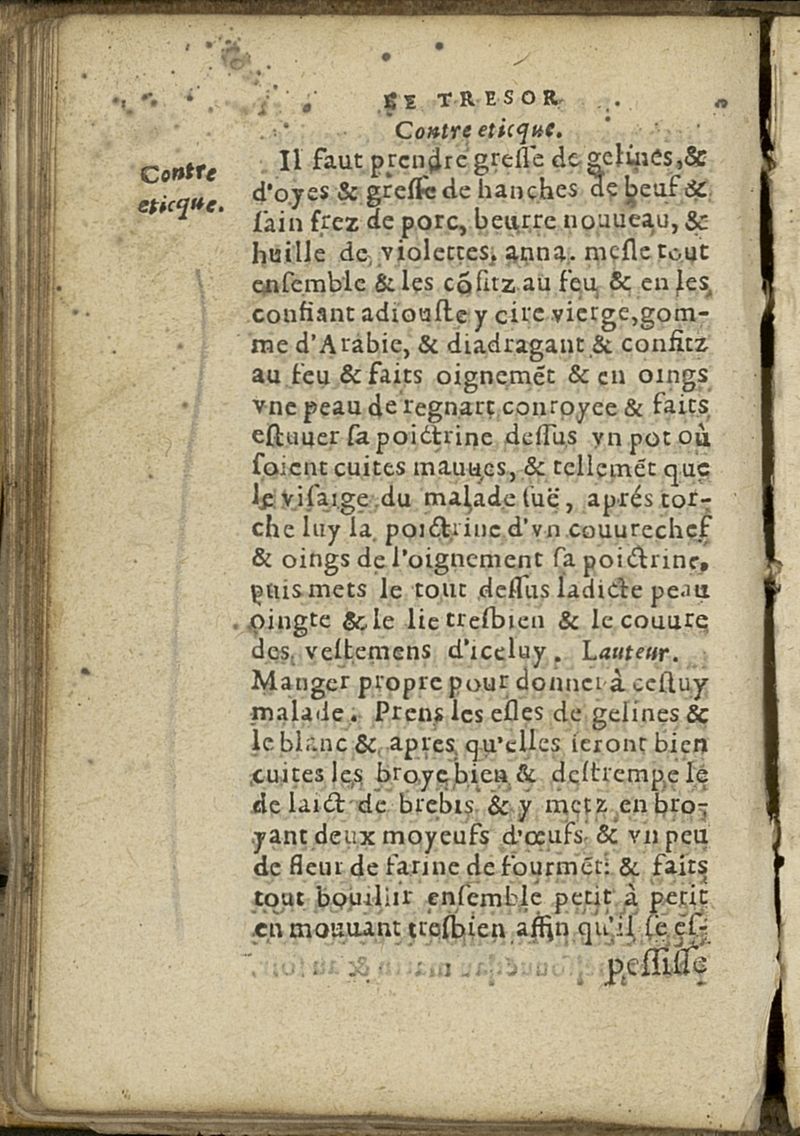 LE TRESOR
Contre eticque.
Contre
eticque.
Il faut prendre gresse de gelines, &
d'oyes & gresse de hanches de beuf &
ſain frez de porc, beurre nouueau, &
huille de violettes. anna. meſle tout
enſemble & les cõfitz au feu & en les
confiant adiouſte y cire vierge, gom-
me d'Arabie, & diadragant & confitz
au feu & faits oignemẽt & en oings
vne peau de regnart conroyee & faits
eſtuuer ſa poictrine deſſus vn pot où
ſoient cuites mauues, & tellemẽt que
le viſaige du malade ſuë, aprés tor-
che luy la poictrine d'vn couurechef
& oings de l'oignement ſa poictrine,
puis mets le tout deſſus ladicte peau
oingte & le lie treſbien & le couure
des veſtemens d'iceluy. Lauteur.
Manger propre pour donner à ceſtuy
malade. Prens les eſles de gelines &
le blanc & apres qu'elles ſeront bien
cuites les broye bien & deſtrempe le
de laict de brebis & y metz en bro-
yant deux moyeufs d'œufs & vn peu
de fleur de farine de fourmẽt: & faits
tout bouillir enſemble petit à petit
en mouuant treſbien affin qu'il ſe eſ-
peſſiſſe